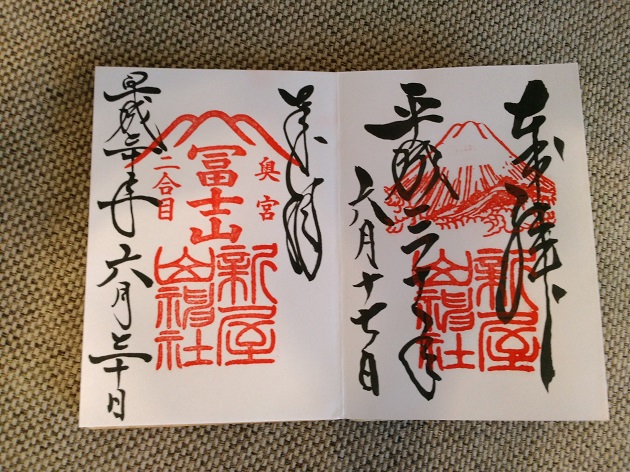 奉拝
平成三十年
六月十七日
新屋
山神社
奉拝
奥宮
冨士山
二合目
新屋
山神社
平成三十年六月三十日